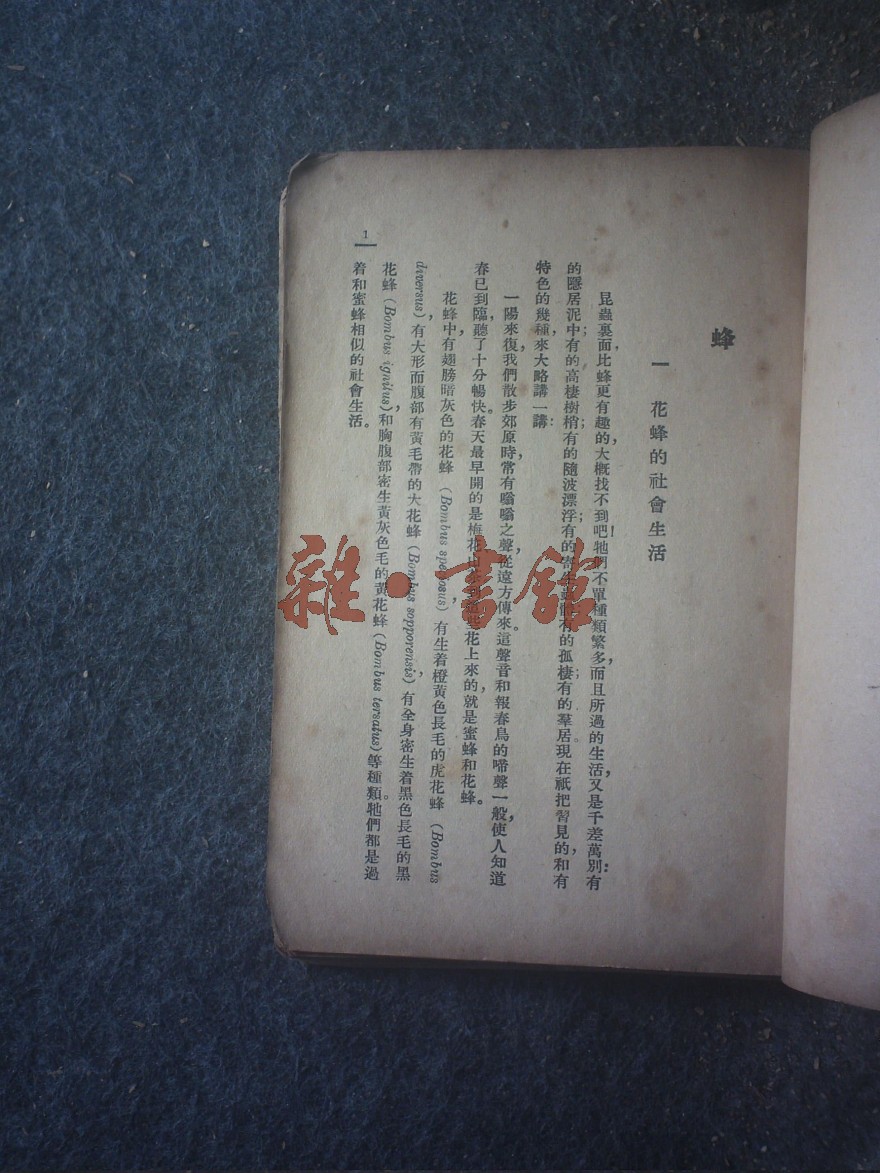 蜂
一 花蜂的社會生活
昆蟲裏面，比蜂更有趣的，大概找不到吧！牠們不單種類繁多，而且所過的生活，又是千差萬別：有
的隱居泥中；有的高棲樹梢；有的隨波漂浮；有的寄生蟲體；有的孤棲；有的羣居。現在祇把習見的，和有
特色的幾種，來大略講一講：
一陽來復，我們散步郊原時，常有嗡嗡之聲，從遠方傳來。這聲音和報春鳥的啼聲一般，使人知道
春已到臨，聽了十分暢快。春天最早開的是梅花山茶，到這些花上來的，就是蜜蜂和花蜂。
花蜂中，有翅膀暗灰色的花蜂（Bombus speciosus），有生着橙黃色長毛的虎花蜂（Bombus
diversus），有大形而腹部有黃毛帶的大花蜂（Bombus sopporensis），有全身密生着黑色長毛的黑
花蜂（Bombus ignitus），和胸腹部密生黃灰色毛的黃花蜂（Bombus tersatus）等種類。牠們都是過
着和蜜蜂相似的社會生活。
1
雜·書館